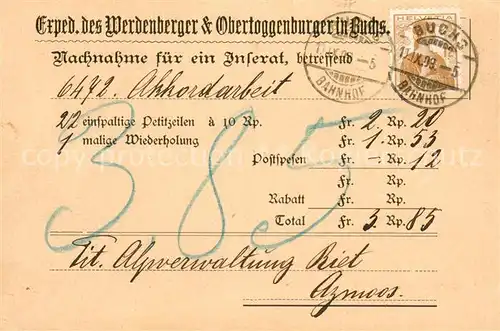 Exped. des Werdenberger & Obertoggenburger in Buchs.
Nachnahme für ein Inserat, betreffend
6472. Akkordarbeit
22 einspaltige Petitzeilen à 10 Rp. Fr. 2. Rp. 20
1 malige Wiederholung Fr. 1. Rp. 53
Postspesen Fr. – Rp. 12
Fr. Rp.
Rabatt Fr. Rp.
Total Fr. 3. Rp. 85
3.85
Tit. Alpverwaltung Biet
Azmoos.
HELVETIA
BUCHS
11.IX.99.-5
BAHNHOF
11.IX.99.-5
BAHNHOF